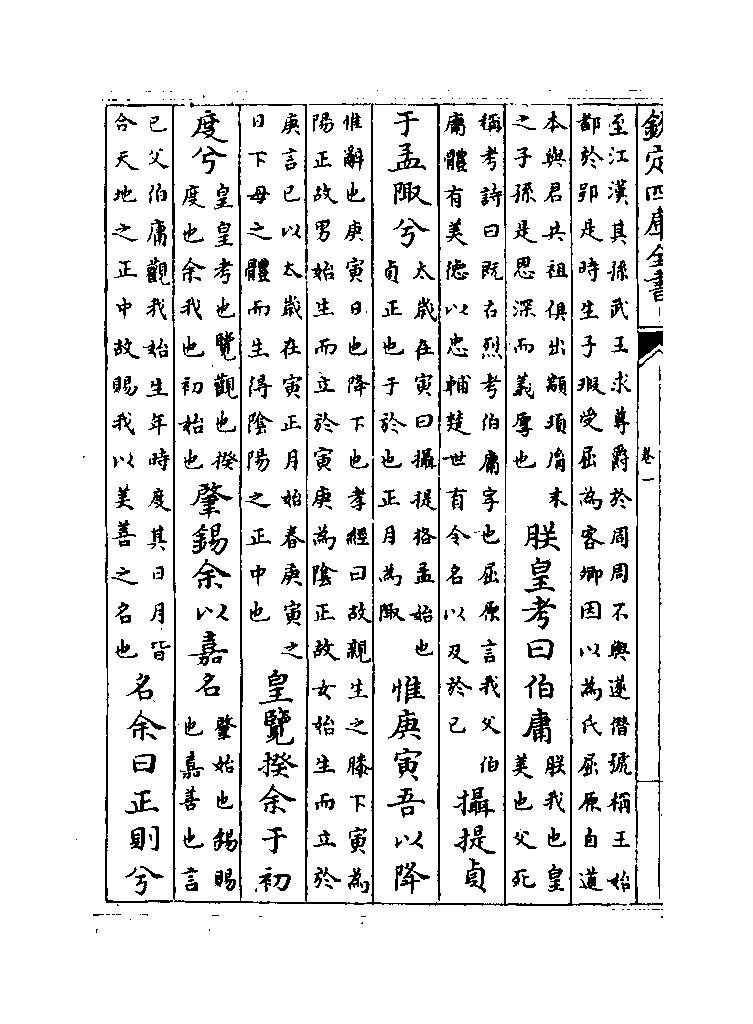 欽定四庫全書
卷一
至江漢其孫武王求尊爵於周周不與遂僭號稱王始
都於郢是時生子瑕受屈為客卿因以為氏屈原自道
本與君共祖俱出顓頊胤末
之子孫是恩深而義厚也
朕皇考曰伯庸
朕我也皇
美也父死
稱考詩曰既右烈考伯庸字也屈原言我父伯
庸體有美德以忠輔楚世有令名以及於已
攝提貞
于孟陬兮
太歲在寅曰攝提格孟始也
貞正也于於也正月為陬
惟庚寅吾以降
惟辭也庚寅日也降下也孝經曰故親生之膝下寅為
陽正故男始生而立於寅庚為陰正故女始生而立於
庚言已以太歲在寅正月始春庚寅之
日下母之體而生得陰陽之正中也
皇覽揆余于初
度兮
皇皇考也覽觀也揆
度也余我也初始也
肇錫余以嘉名
肇始也錫賜
也嘉善也言
已父伯庸觀我始生年時度其日月皆
合天地之正中故賜我以美善之名也
名余曰正則兮